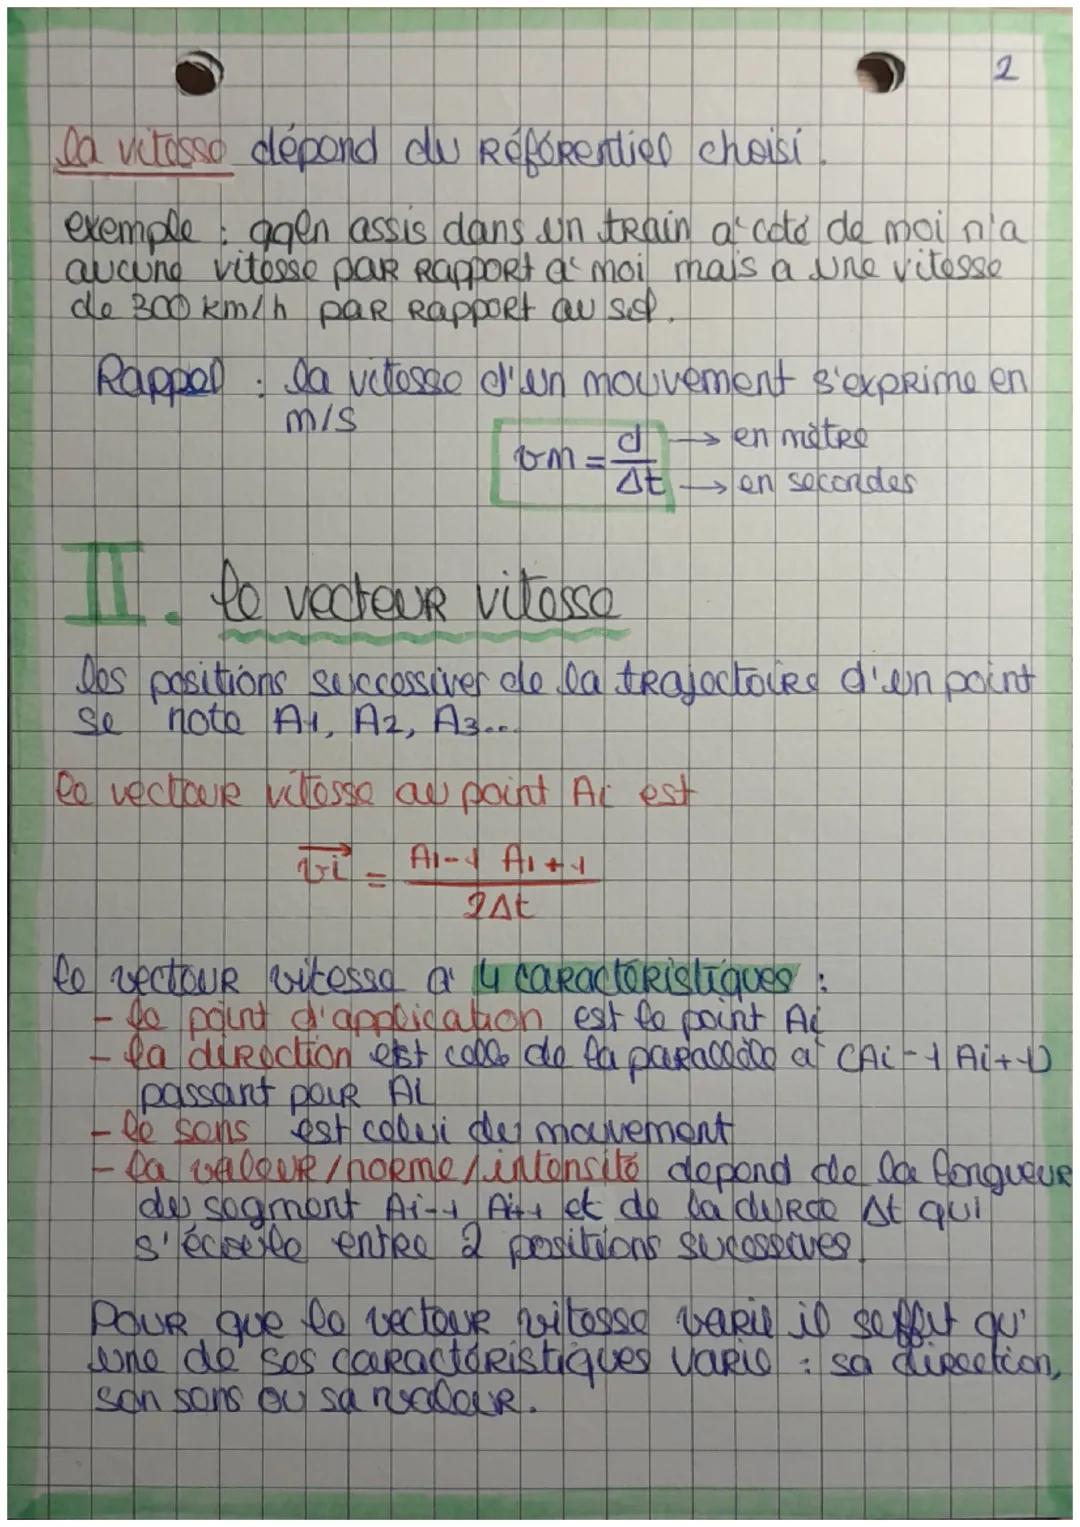 2
la vitesse dépend du Référentiel choisi.
exemple : qqen assis dans un train a coté de moi n'a
aucune vitesse par rapport a moi mais a une vitesse
de 300 km/h par rapport au sol.
Rappel : la vitesse d'un mouvement s'exprime en
m/s
vm = d/Δt → en mètre
→ en secondes
II. le vecteur vitesse
les positions successives de la trajectoire d'un point
se note A1, A2, A3...
le vecteur vitesse au point Ai est
vi = Ai-1 Ai+1 / 2Δt
le vecteur vitesse a 4 caractéristiques :
- le point d'application est le point Ai
- la direction est celle de la parallèle a (Ai-1 Ai+1)
passant pour Ai
- le sens est celui du mouvement
- la valeur/norme/intensité depend de la longueur
du segment Ai-1 Ai+1 et de la durée Δt qui
s'écoule entre 2 positions sucessives.
Pour que le vecteur vitesse varie il suffit qu'
une de ses caractéristiques varie : sa direction,
son sens ou sa valeur.